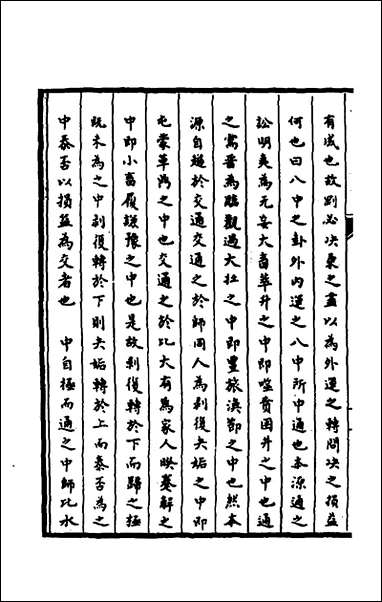 有咸也故剝必决東之盡以為外運之轉問决之損益
何也曰八中之卦外内運之八中所中通也本源通之
訟明夷為无妄大畜萃升之中即噬賁困井之中也通
之需晋為臨觀過大壮之中即豐旅渙節之中也然本
源自遯於交通交通之於師同人為剥復夬姤之中即
屯蒙革鼎之中也交通之於比大有為家人睽蹇解之
中即小畜履謙豫之中也是故剥復轉於下而歸之極
既未為之中剥復轉於下則夬姤轉於上而泰否為之
中泰否以損益為交者也　中自極而通之中師比水